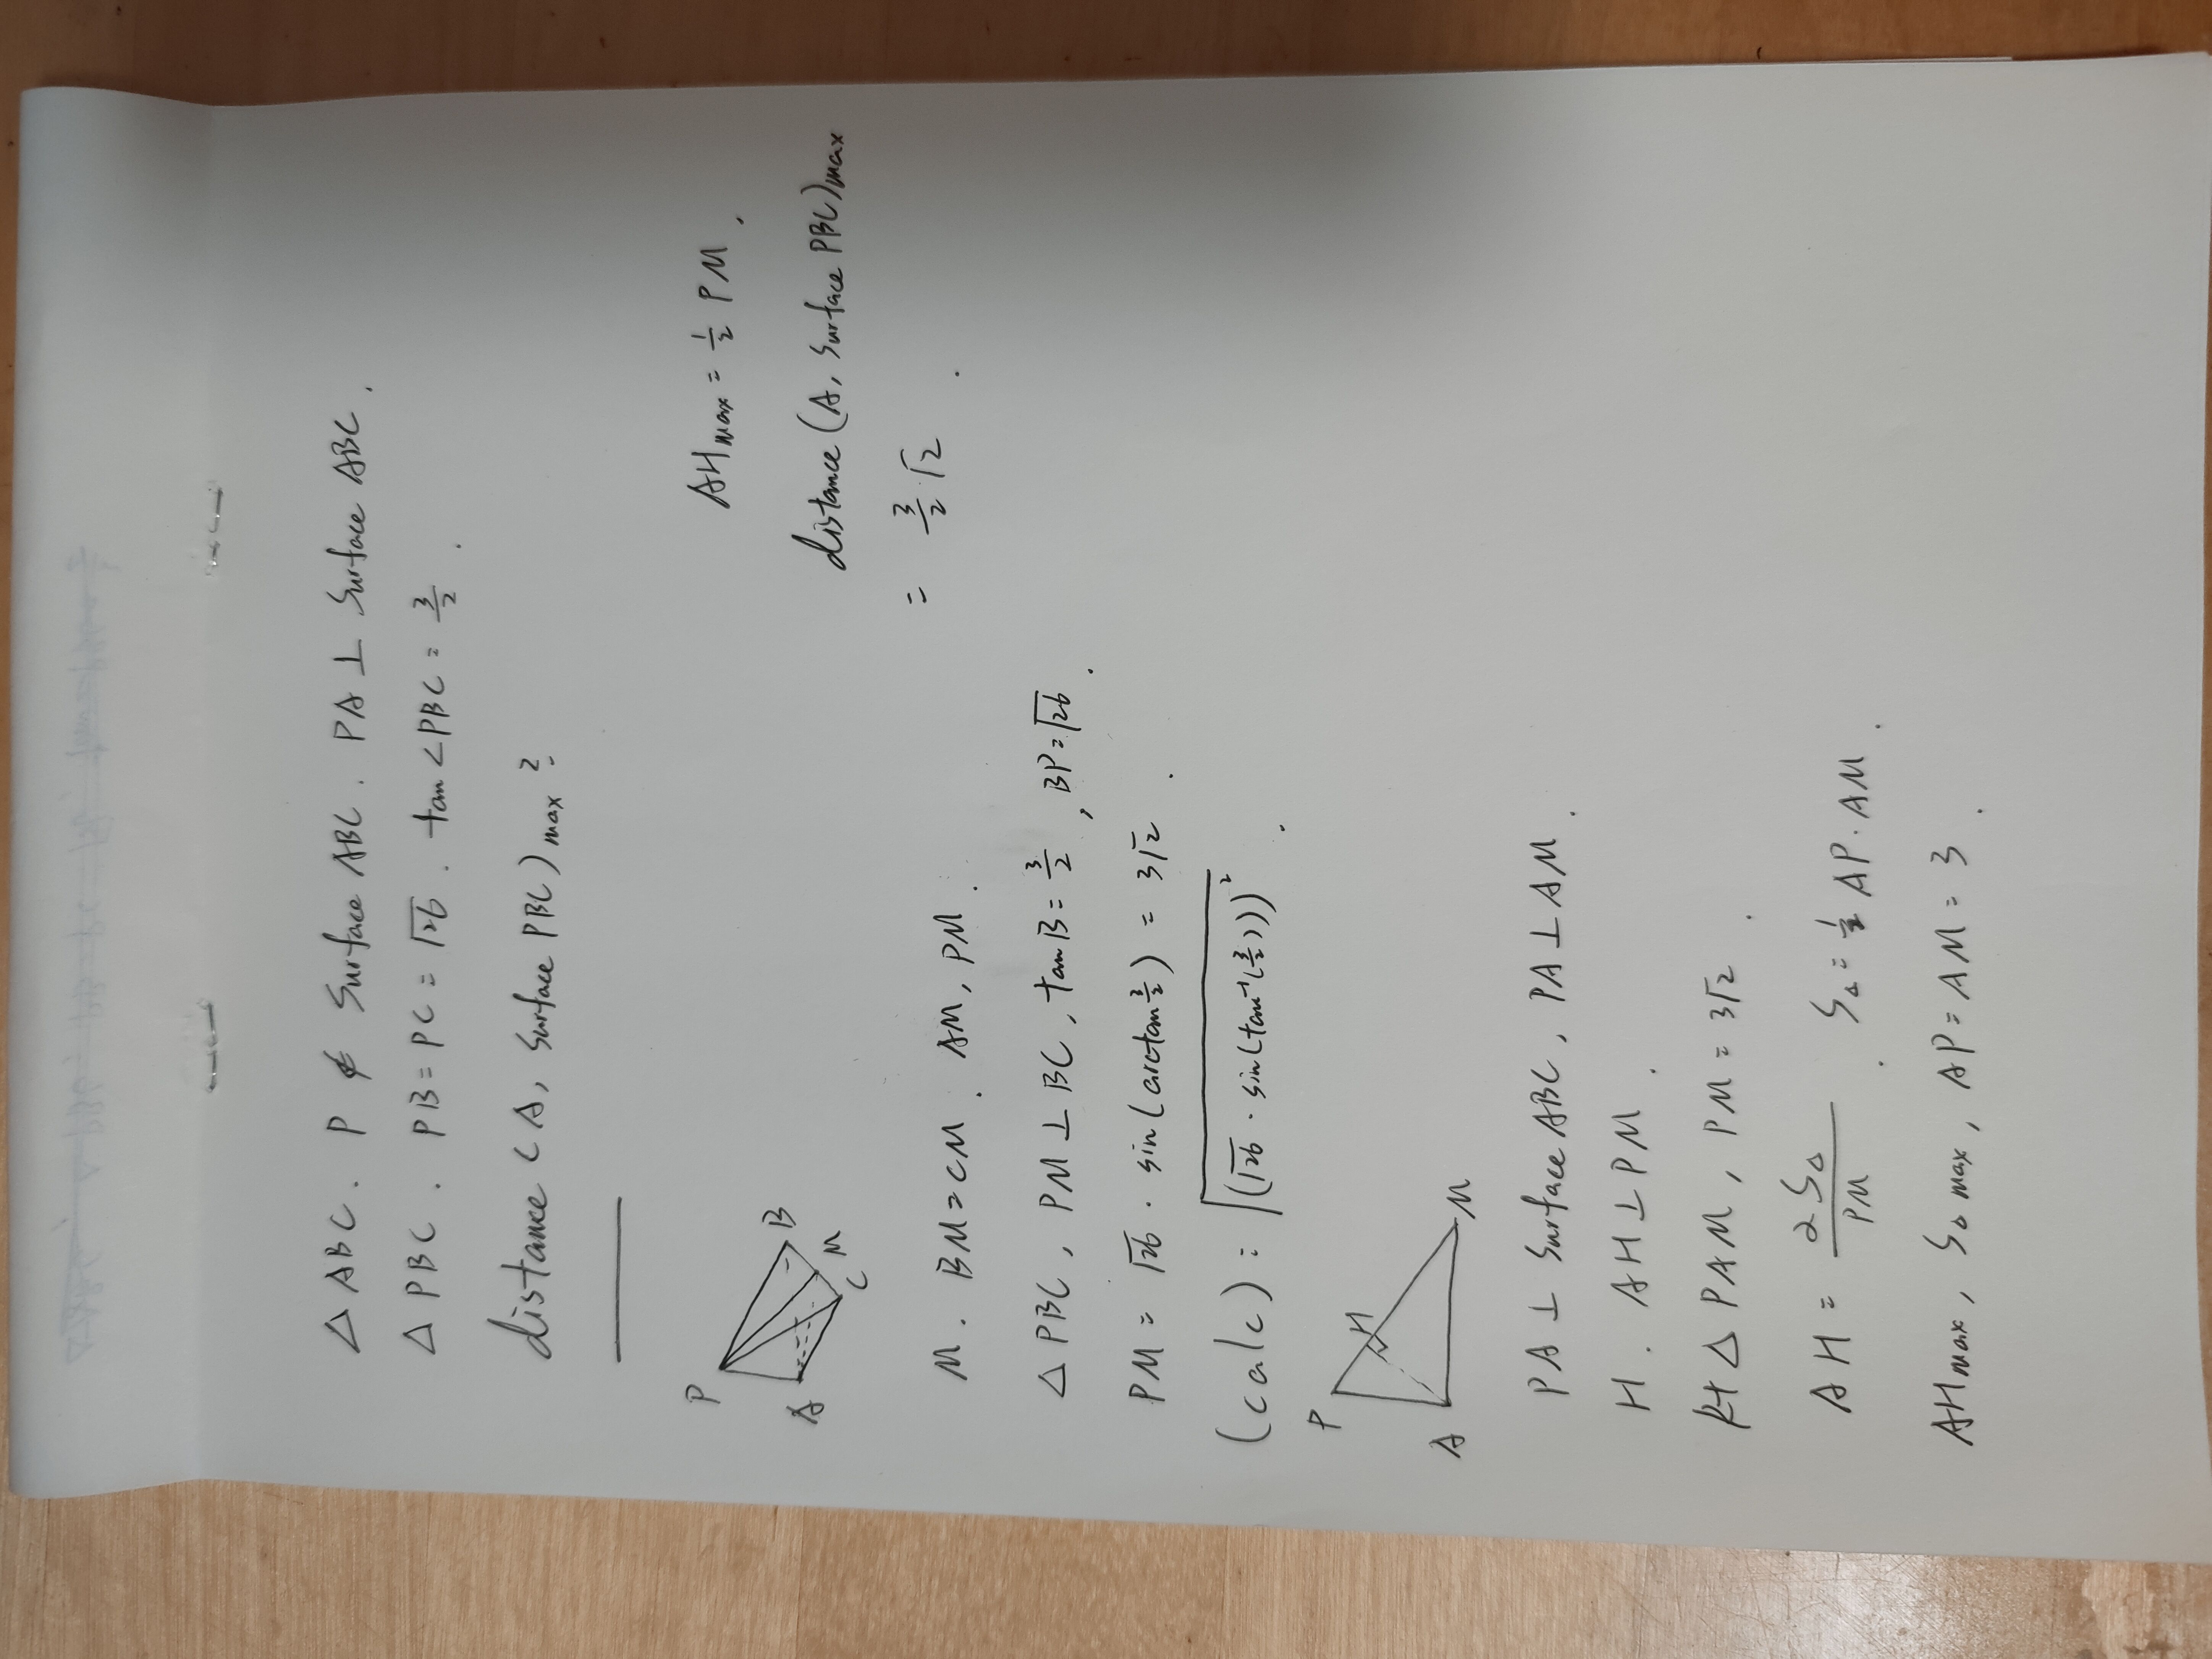 △ABC. P ∉ Surface ABC. PA ⊥ Surface ABC.
△PBC. PB = PC = √26. tan∠PBC = 3/2.
distance (A, Surface PBC)max ?
P
A
B
M
C
M. BM = CM. AM, PM.
△PBC, PM ⊥ BC, tanB = 3/2, BP = √26.
PM = √26 · sin(arctan 3/2) = 3√2.
(calc) : √((√26 · sin(tan⁻¹(3/2)))²).
P
H
A
M
PA ⊥ Surface ABC, PA ⊥ AM.
H. AH ⊥ PM.
Rt △ PAM, PM = 3√2.
AH = 2S△/PM. S△ = 1/2 AP · AM.
AHmax, S△max, AP = AM = 3.
AHmax = 1/2 PM.
distance (A, Surface PBC)max
= 3/2 √2.